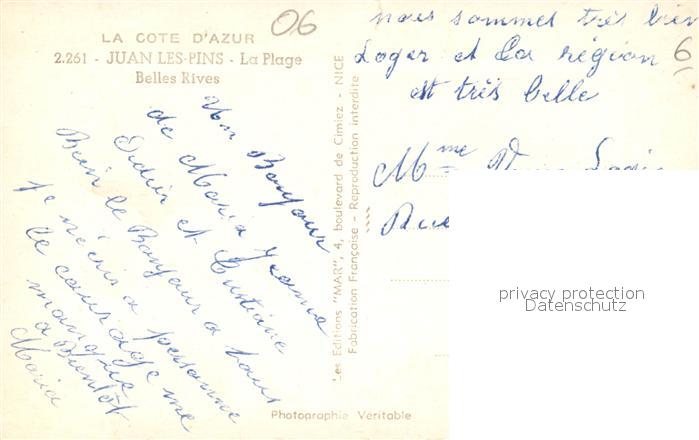 LA COTE D'AZUR
2.261 - JUAN LES-PINS - La Plage
Belles Rives
06
Un Bonjour
de Maria Yvonne
Didier et Cristiane
Bien le Bonjour a tous
je n'écris a personne
le courage me
manque
a Bientôt
Maria
Les Editions "MAR", 4, boulevard de Cimiez - NICE
Fabrication Française - Reproduction interdite
nous sommes très bien
Loger et la région
est très belle
6
Mme
Rue
privacy protection
Datenschutz
Photographie Véritable